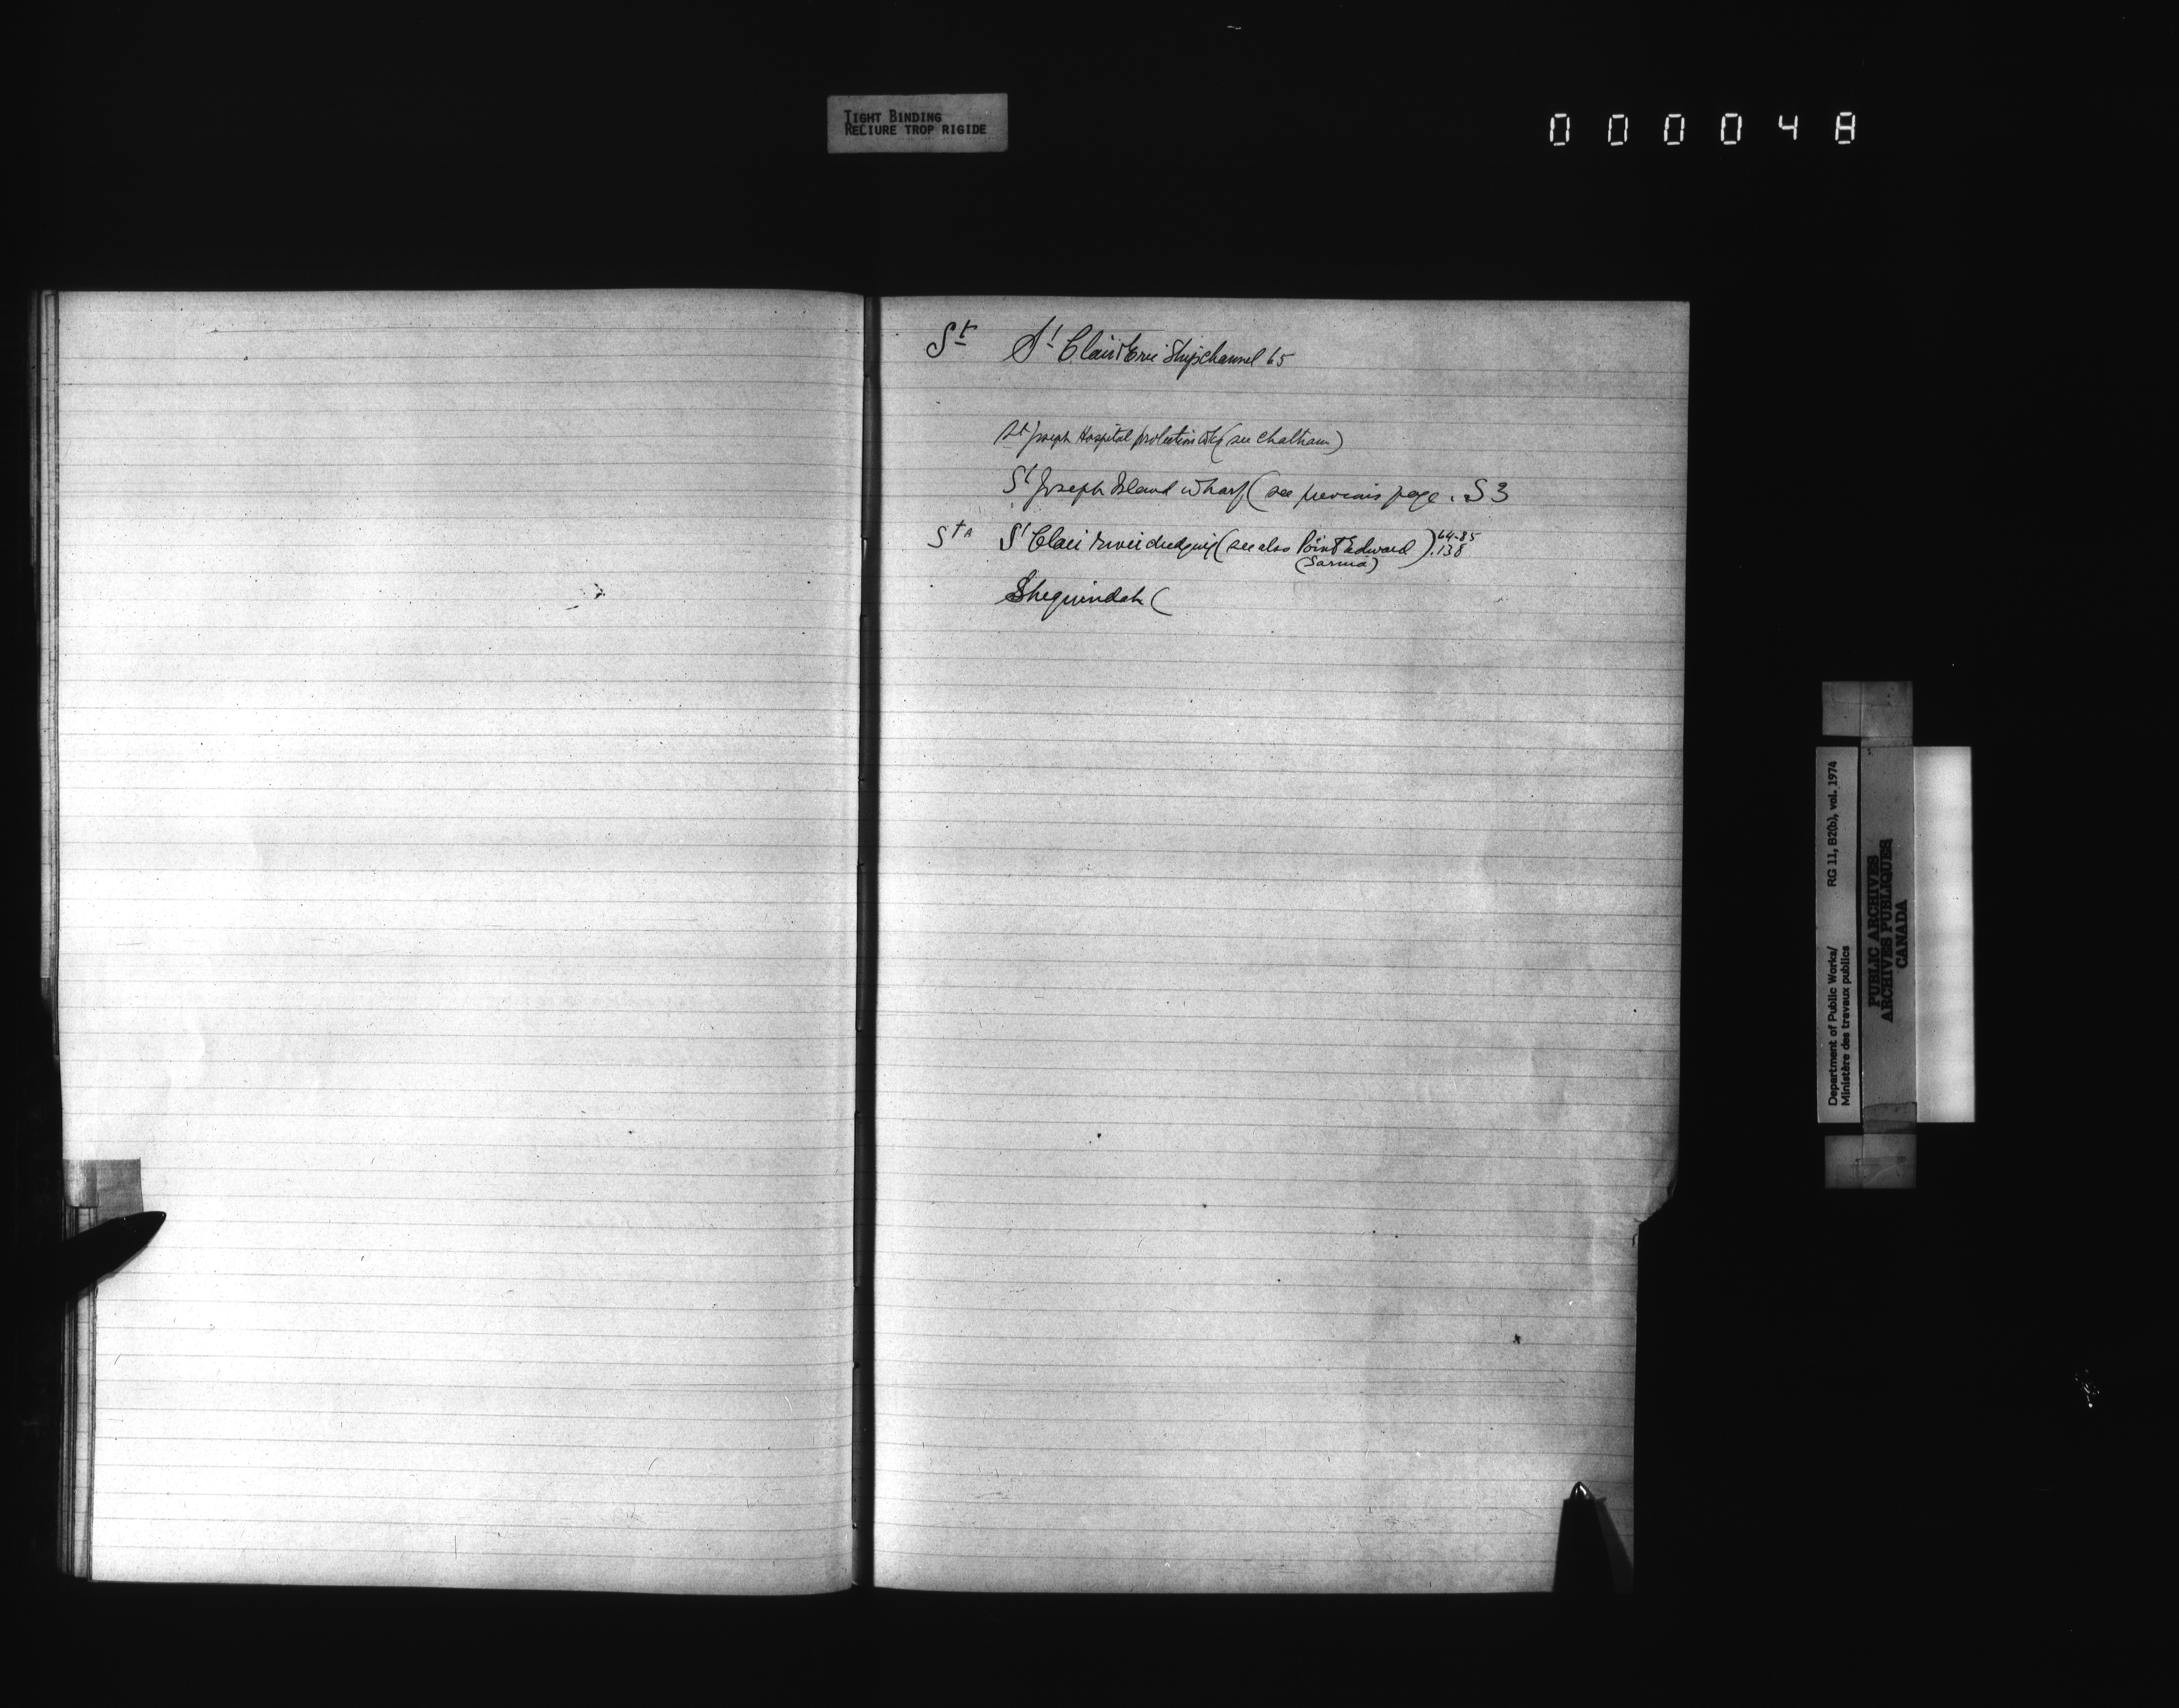 TIGHT BINDING
RELIURE TROP RIGIDE
000048
St St Clair & Erie Shipchannel 65
St Joseph Hospital protection (see Chatham)
St Joseph Island wharf (see previous page. S 3
St A St Clair River dredging (see also Point Edward) 64-85
(Sarnia) .138
Sheguindah (
Department of Public Works/ RG 11, B2(b), vol. 1974
Ministère des travaux publics
PUBLIC ARCHIVES
ARCHIVES PUBLIQUES
CANADA